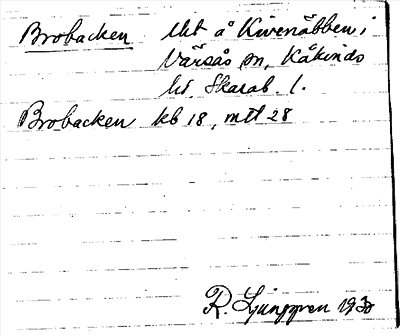 Brobacken Utt å Kivenäbben, i
Värsås sn, Kåkinds
hd, Skarab. l.
Brobacken kb 18, mtl 28
R. Ljunggren 1930